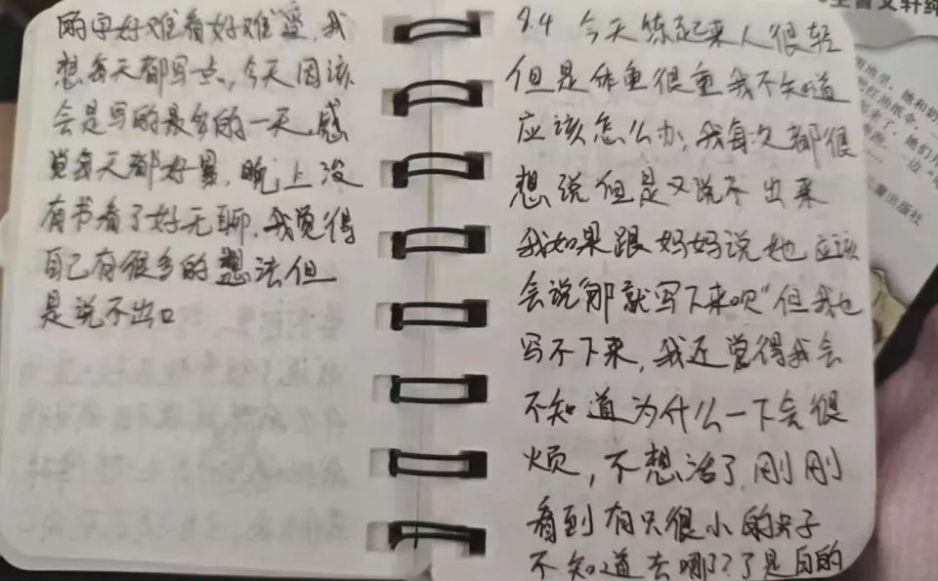 的字好难看好难受,我
想每天都写一点,今天因该
会是写的最多的一天,感
觉每天都好累,晚上没
有书看了好无聊,我觉得
自己有很多的想法但
是说不出口
9.4 今天练起来人很轻
但是体重很重我不知道
应该怎么办,我每次都很
想说但是又说不出来
我如果跟妈妈说她应该
会说“那就写下来呗”但我也
写不下来,我还觉得我会
不知道为什么一下会很
烦,不想活了,刚刚
看到有只很小的虫子
不知道去哪了?了是白的
文轩
童出版社